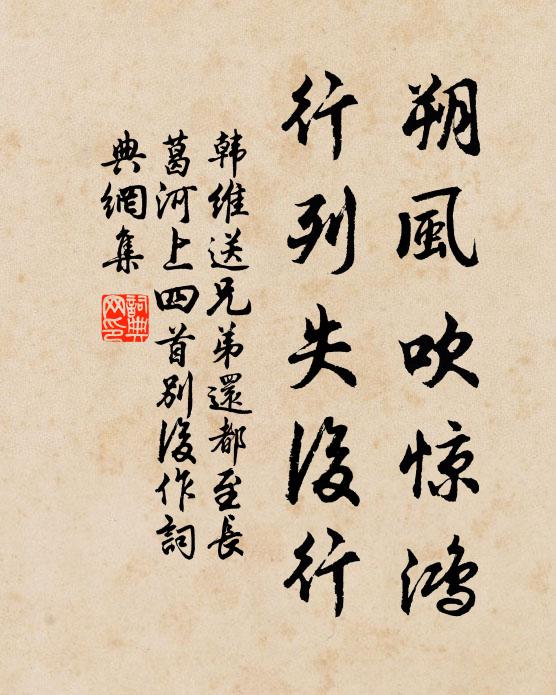 朔風吹惊鸿
行列失後行
韩维送兄弟還都至長
葛河上四首別後作詞
典網集
詞典网印